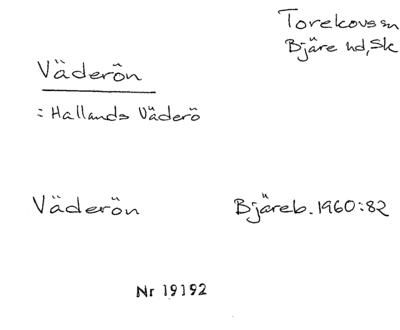 Torekovs sn
Bjäre hd, Sk
Väderön
= Hallands Väderö
Väderön Bjäreb. 1960:82
Nr 19192